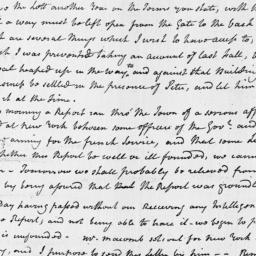 the Lott another Year on the Terms you state, with
a way must be left open from the Gate to the back
are several things which I wish to have
I was prevented taking an account of last Fall,
heaped up in the Way, and against that Building
be called in the presence of Peter, and let him
it at the time.
morning a Report ran thro' the Town of a serious
at New York between some officers of the Gov.t and
arming for the French Service, and that some
whether this Report be well or ill founded, we
Tomorrow we shall probably be relieved from
by being assured that the Report was
Day having passed without our Receiving any Intelligen
Report, and not being able to trace it - we begin to
is unfounded. - Mr. Macomb set out for New York
and I purpose to send this Letter by him